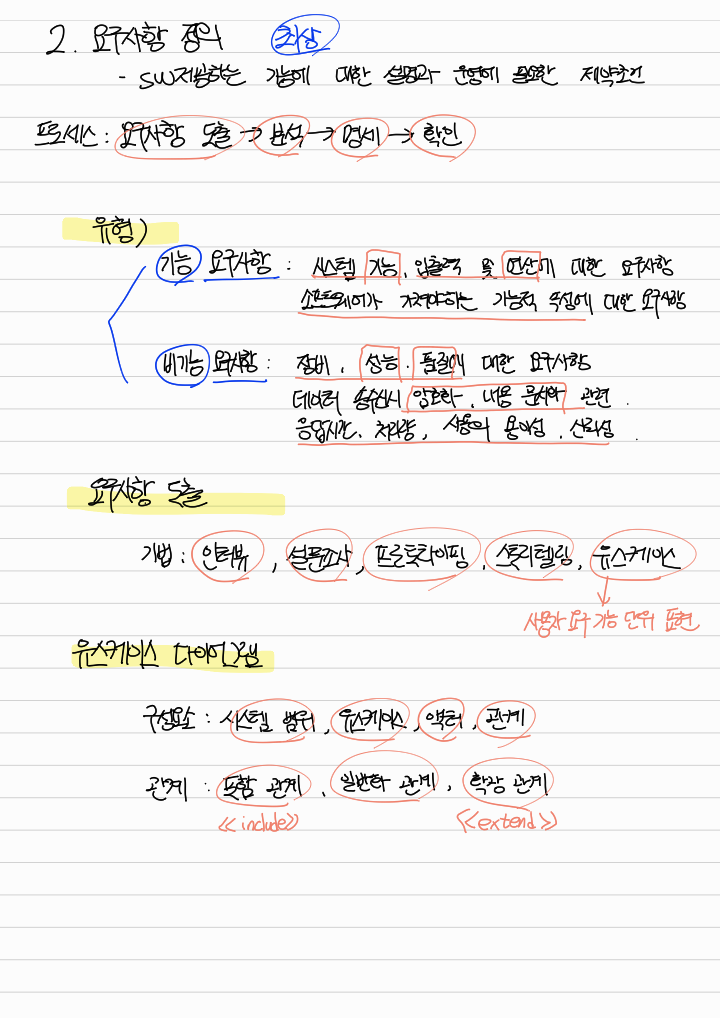 2. 요구사항 정의 최상
- SW제공하는 기능에 대한 설명과 운영에 필요한 제약조건
프로세스 : 요구사항 도출 → 분석 → 명세 → 확인
유형)
기능 요구사항 : 시스템 기능, 입출력 및 연산에 대한 요구사항
소프트웨어가 가져야하는 기능적 속성에 대한 요구사항
비기능 요구사항 : 장비, 성능, 품질에 대한 요구사항
데이터 송수신시 암호화, 내용 문서화 관련.
응답시간, 처리량, 사용의 용이성, 신뢰성.
요구사항 도출
기법 : 인터뷰, 설문조사, 프로토타이핑, 스토리텔링, 유스케이스
사용자 요구 기능 단위 표현
유스케이스 다이어그램
구성요소 : 시스템 범위, 유스케이스, 액터, 관계
관계 : 포함 관계, 일반화 관계, 확장 관계
<<include>> <<extend>>